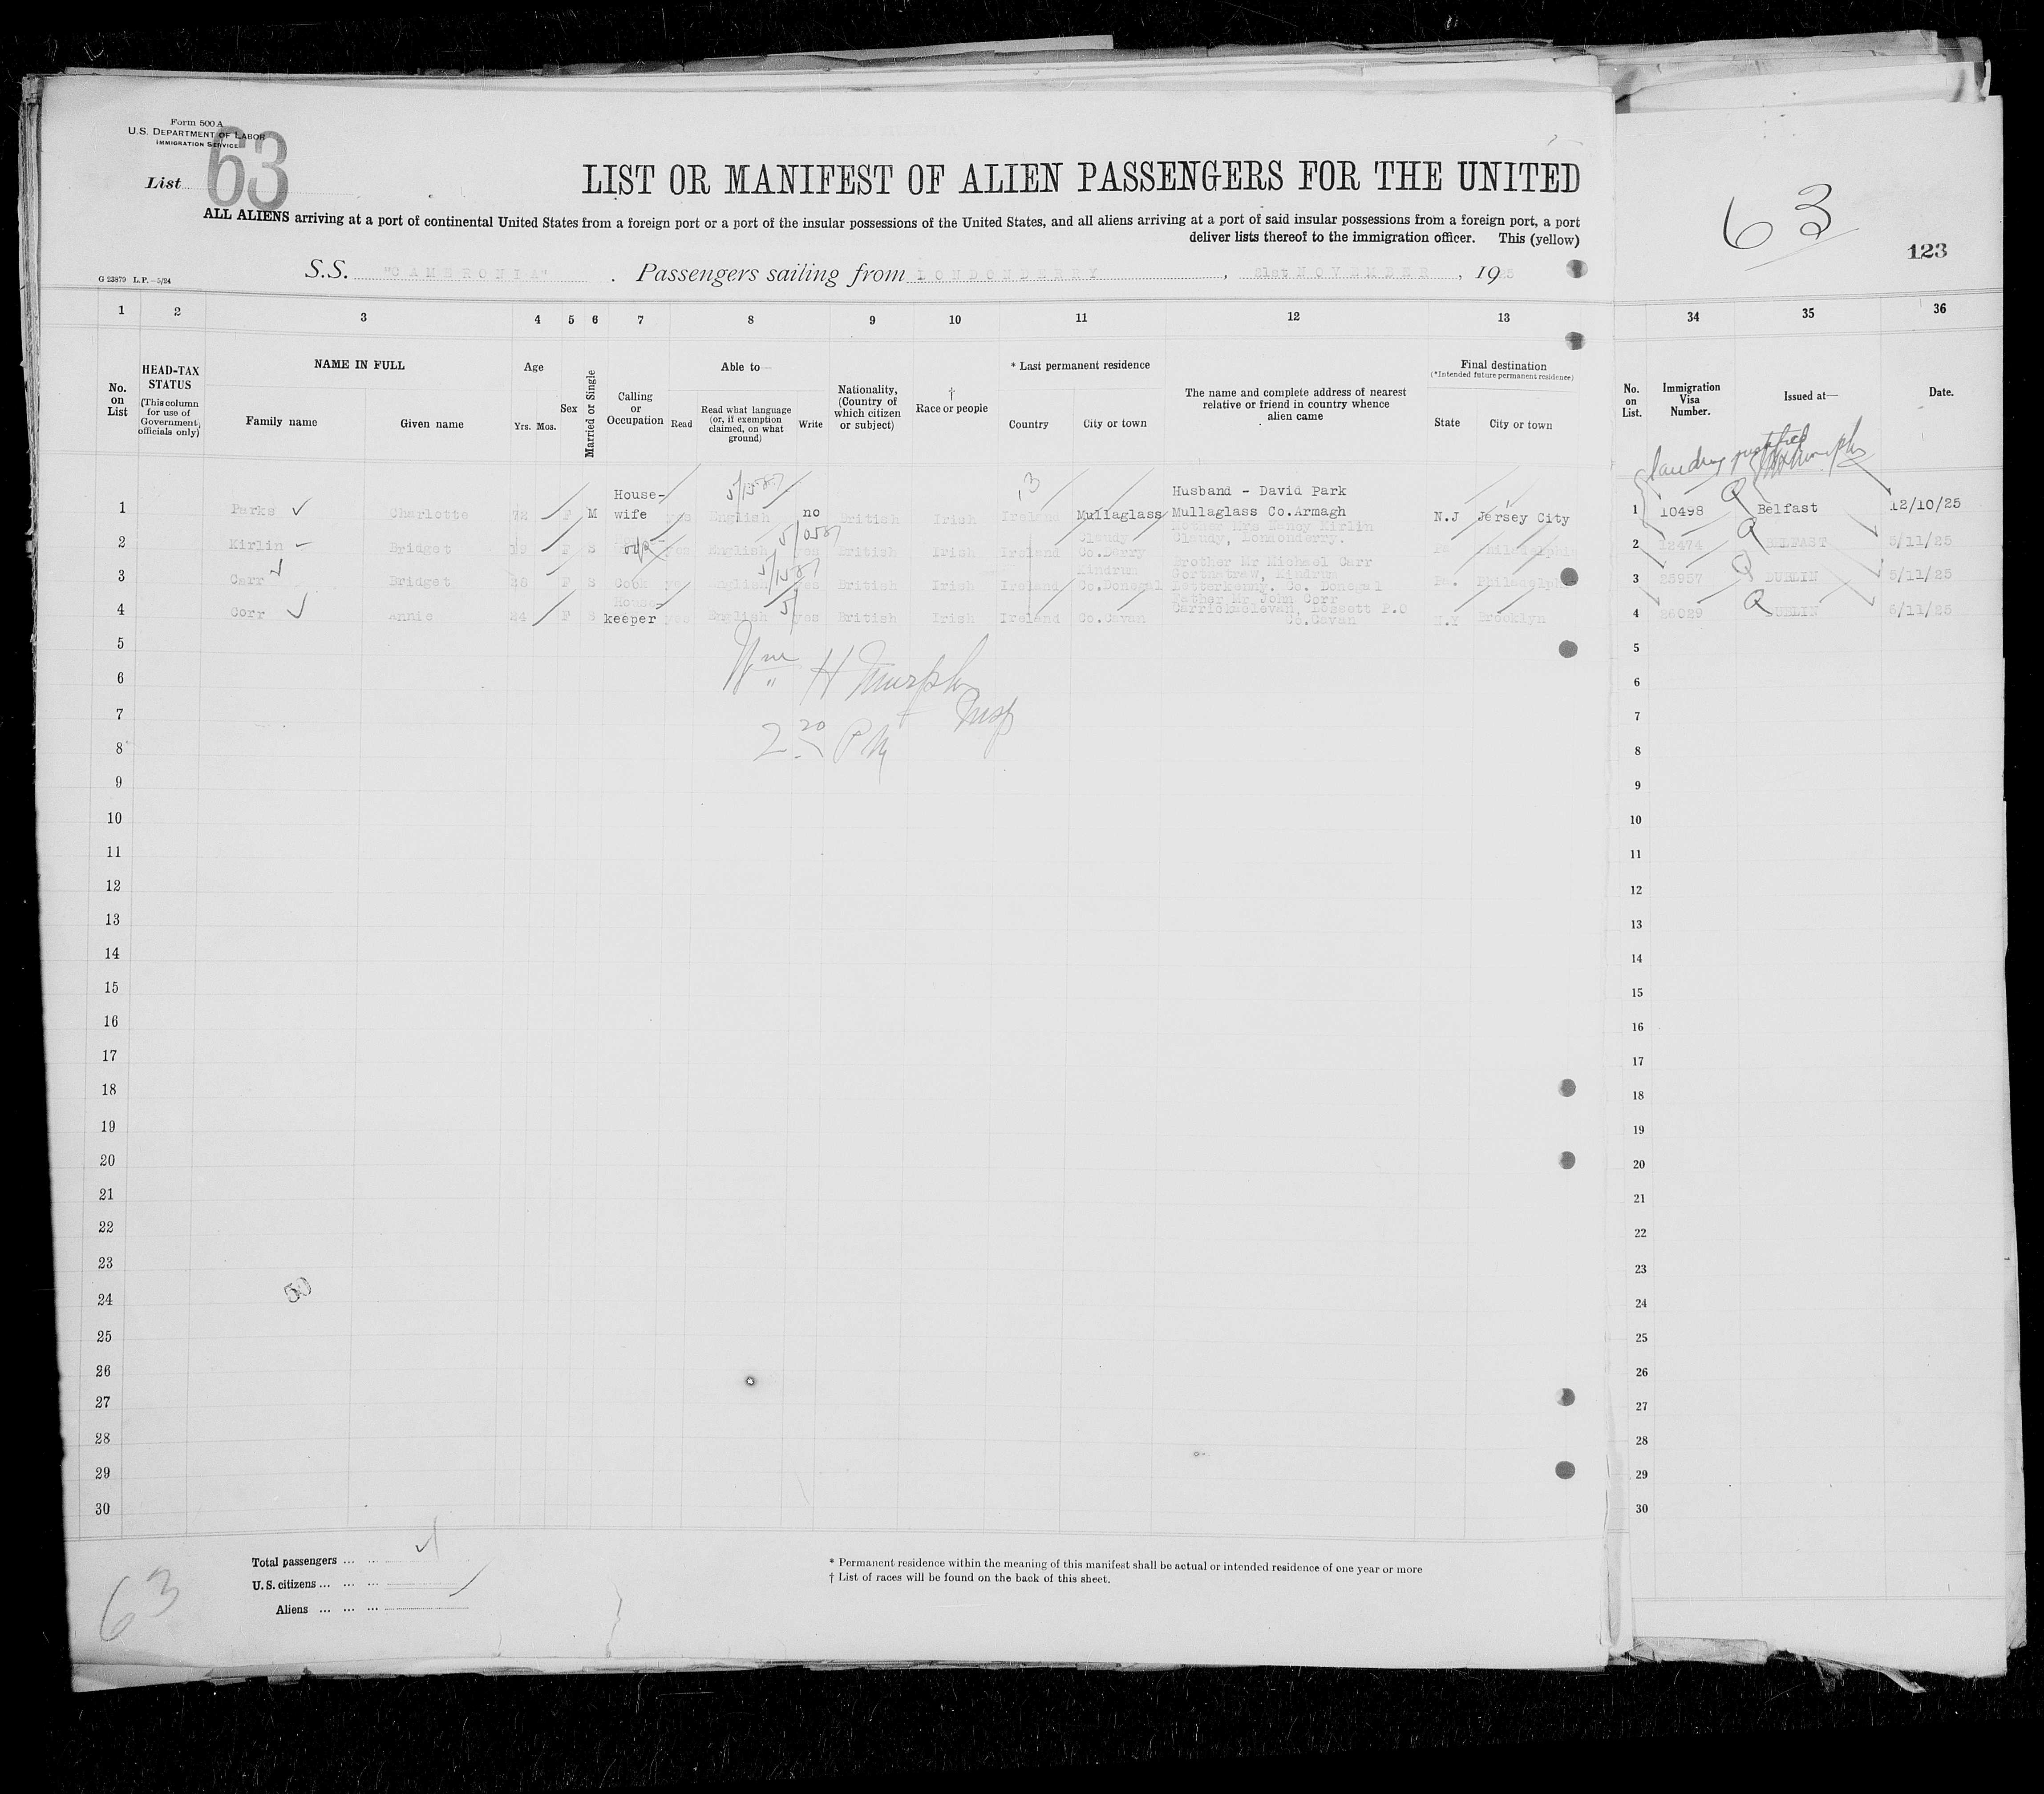 Form 500 A
U.S. DEPARTMENT OF LABOR
IMMIGRATION SERVICE
List 63
LIST OR MANIFEST OF ALIEN PASSENGERS FOR THE UNITED
ALL ALIENS arriving at a port of continental United States from a foreign port or a port of the insular possessions of the United States, and all aliens arriving at a port of said insular possessions from a foreign port, a port
deliver lists thereof to the immigration officer. This (yellow)
G 23879 L.P.—5/24
S.S. "CAMERONIA". Passengers sailing from LONDONDERRY, 21st NOVEMBER, 1925
63
123
1 2 3 4 5 6 7 8 9 10 11 12 13
34 35 36
No. on List
HEAD-TAX STATUS (This column for use of Government officials only)
NAME IN FULL
Family name Given name
Age
Yrs. Mos.
Sex
Married or Single
Calling or Occupation
Able to—
Read Read what language (or, if exemption claimed, on what ground) Write
Nationality, (Country of which citizen or subject)
† Race or people
* Last permanent residence
Country City or town
The name and complete address of nearest relative or friend in country whence alien came
Final destination
(*Intended future permanent residence)
State City or town
No. on List.
Immigration Visa Number.
Issued at—
Date.
1 Parks Charlotte 72 F M House-wife yes English no British Irish Ireland Mullaglass Husband - David Park Mullaglass Co.Armagh N.J Jersey City
2 Kirlin Bridget 19 F S yes English yes British Irish Ireland Claudy Co.Derry Mother Mrs Nancy Kirlin Claudy, Londonderry. Pa Philadelphia
3 Carr Bridget 28 F S Cook yes English yes British Irish Ireland Kindrum Co.Donegal Brother Mr Michael Carr Gortnatraw, Kindrum Letterkenny. Co. Donegal Pa. Philadelphia
4 Corr Annie 24 F S House keeper yes English yes British Irish Ireland Co.Cavan Father Mr John Corr Carrickaclevan, Lossett P.O Co.Cavan N.Y Brooklyn
1 10498 Belfast 12/10/25
2 12474 BELFAST 5/11/25
3 25957 DUBLIN 5/11/25
4 26029 DUBLIN 6/11/25
5
6
7
8
9
10
11
12
13
14
15
16
17
18
19
20
21
22
23
24
25
26
27
28
29
30
Wm H Murphy
Insp
2.20 PM
50
5
6
7
8
9
10
11
12
13
14
15
16
17
18
19
20
21
22
23
24
25
26
27
28
29
30
63
Total passengers ... ...
U.S. citizens ... ... ...
Aliens ... ... ...
* Permanent residence within the meaning of this manifest shall be actual or intended residence of one year or more
† List of races will be found on the back of this sheet.